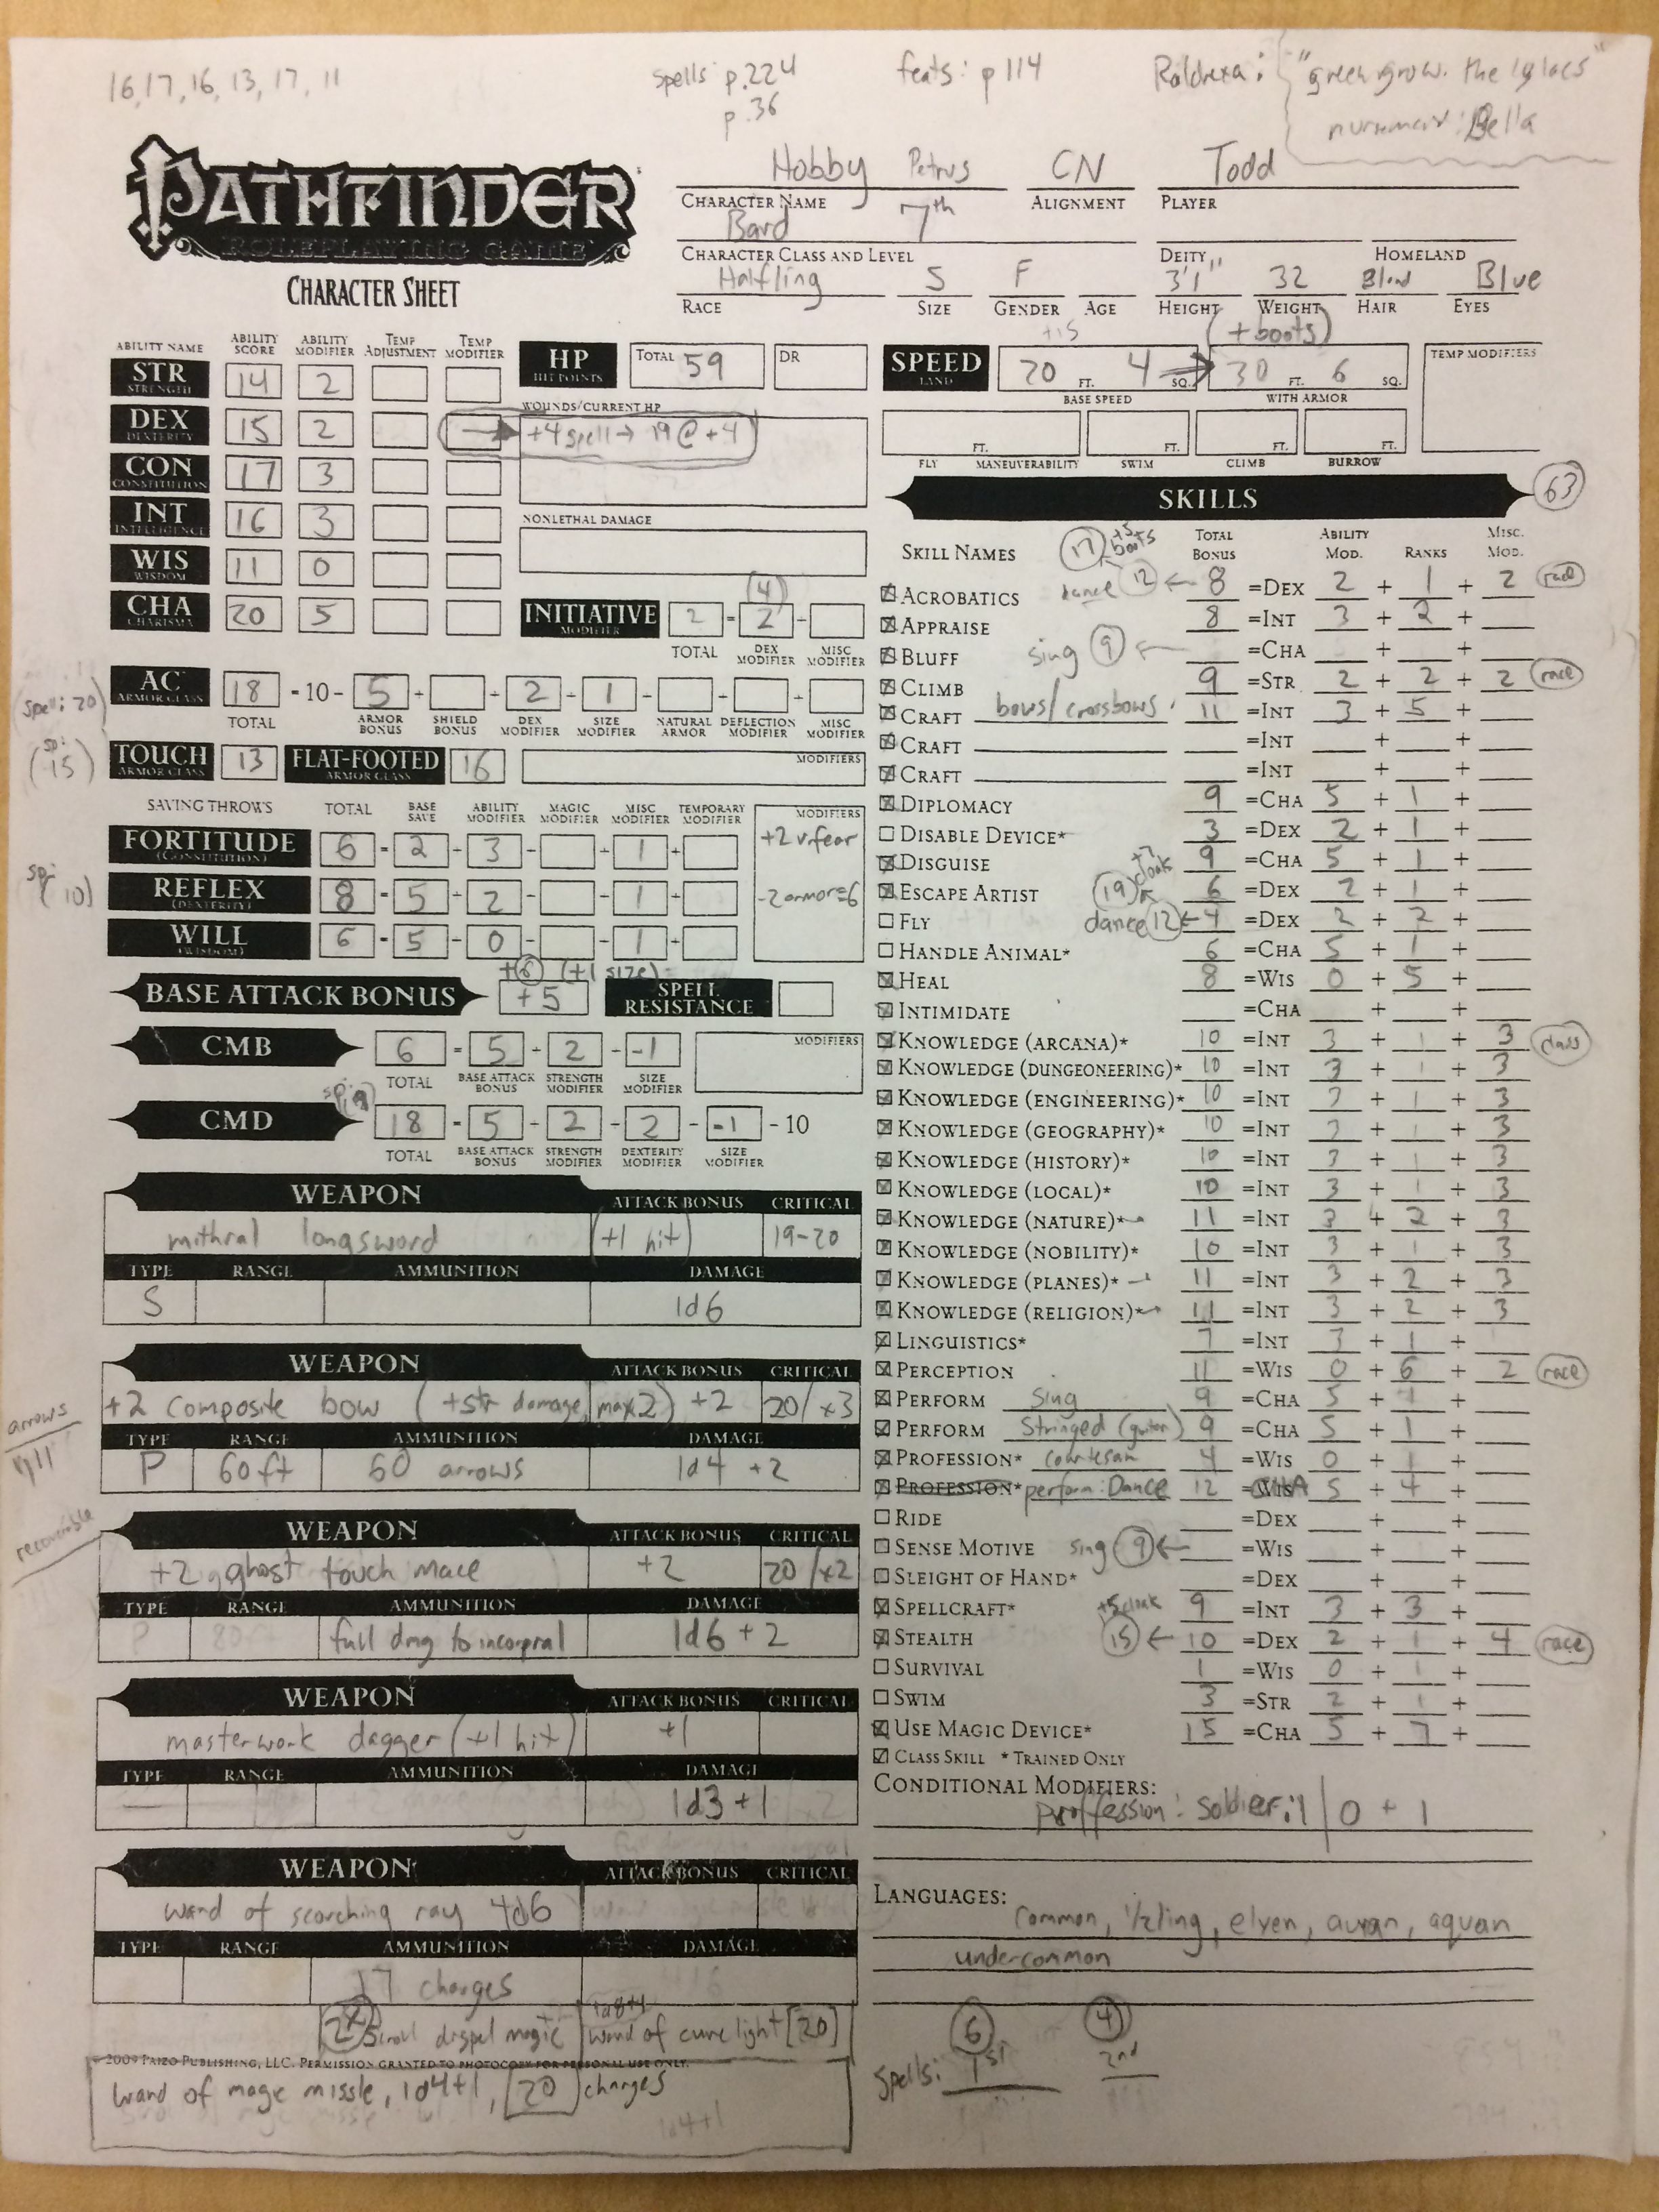 16, 17, 16, 13, 17, 11
spells: p.224 feats: p 114
p.36
nursemaid: Bella
PATHFINDER
ROLEPLAYING GAME
CHARACTER SHEET
Hobby Petrus CN Todd
CHARACTER NAME ALIGNMENT PLAYER
Bard 7th
CHARACTER CLASS AND LEVEL DEITY HOMELAND
Halfling S F 3'1" 32 Blond Blue
RACE SIZE GENDER AGE HEIGHT WEIGHT HAIR EYES
ABILITY NAME ABILITY SCORE ABILITY MODIFIER TEMP ADJUSTMENT TEMP MODIFIER
STR STRENGTH 14 2
DEX DEXTERITY 15 2
CON CONSTITUTION 17 3
INT INTELLIGENCE 16 3
WIS WISDOM 11 0
CHA CHARISMA 20 5
HP HIT POINTS TOTAL 59 DR
WOUNDS/CURRENT HP
+4 spell → 19 @ +4
NONLETHAL DAMAGE
(4)
INITIATIVE MODIFIER 2 = 2
TOTAL DEX MODIFIER MISC MODIFIER
(+boots)
SPEED LAND 20 FT. 4 SQ. 30 FT. 6 SQ. TEMP MODIFIERS
BASE SPEED WITH ARMOR
FT. FT. FT. FT.
FLY MANEUVERABILITY SWIM CLIMB BURROW
(spell: 20) AC ARMOR CLASS 18 -10- 5 + + 2 + 1
TOTAL ARMOR BONUS SHIELD BONUS DEX MODIFIER SIZE MODIFIER NATURAL ARMOR DEFLECTION MODIFIER MISC MODIFIER
(sp: 15) TOUCH ARMOR CLASS 13 FLAT-FOOTED ARMOR CLASS 16 MODIFIERS
SAVING THROWS TOTAL BASE SAVE ABILITY MODIFIER MAGIC MODIFIER MISC MODIFIER TEMPORARY MODIFIER MODIFIERS
FORTITUDE (CONSTITUTION) 6 2 3 1 +2 v. fear
REFLEX (DEXTERITY) 8 5 2 1 -2 armor=6
WILL (WISDOM) 6 5 0 1
(+1 size)
BASE ATTACK BONUS +5 SPELL RESISTANCE
CMB 6 5 2 -1 MODIFIERS
TOTAL BASE ATTACK BONUS STRENGTH MODIFIER SIZE MODIFIER
CMD 18 5 2 2 -1 -10
TOTAL BASE ATTACK BONUS STRENGTH MODIFIER DEXTERITY MODIFIER SIZE MODIFIER
WEAPON ATTACK BONUS CRITICAL
mithral longsword (+1 hit) 19-20
TYPE RANGE AMMUNITION DAMAGE
S 1d6
WEAPON ATTACK BONUS CRITICAL
+2 composite bow (+str damage, max 2) +2 20/x3
TYPE RANGE AMMUNITION DAMAGE
arrows
P 60ft 60 arrows 1d4 +2
recoverable
WEAPON ATTACK BONUS CRITICAL
+2 ghost touch mace +2 20/x2
TYPE RANGE AMMUNITION DAMAGE
full dmg to incorpral 1d6 + 2
WEAPON ATTACK BONUS CRITICAL
masterwork dagger (+1 hit) +1
TYPE RANGE AMMUNITION DAMAGE
— 1d3 +1
WEAPON ATTACK BONUS CRITICAL
wand of scorching ray 4d6
TYPE RANGE AMMUNITION DAMAGE
17 charges
1d8+1
2x scroll dispel magic wand of cure light [20]
© 2009 PAIZO PUBLISHING, LLC. PERMISSION GRANTED TO PHOTOCOPY FOR PERSONAL USE ONLY.
wand of mage missle, 1d4+1, 20 charges
SKILLS 63
SKILL NAMES TOTAL BONUS ABILITY MOD. RANKS MISC. MOD.
17 +5 boots
ACROBATICS dance 12 ← 8 =DEX 2 + 1 + 2 race
APPRAISE 8 =INT 3 + 2 +
BLUFF sing 9 ← =CHA + +
CLIMB 9 =STR 2 + 2 + 2 race
CRAFT bows/crossbows 11 =INT 3 + 5 +
CRAFT =INT + +
CRAFT =INT + +
DIPLOMACY 9 =CHA 5 + 1 +
DISABLE DEVICE* 3 =DEX 2 + 1 +
DISGUISE 9 =CHA 5 + 1 +
ESCAPE ARTIST 19 cloak 6 =DEX 2 + 1 +
FLY dance 12 ← 4 =DEX 2 + 2 +
HANDLE ANIMAL* 6 =CHA 5 + 1 +
HEAL 8 =WIS 0 + 5 +
INTIMIDATE =CHA + +
KNOWLEDGE (ARCANA)* 10 =INT 3 + 1 + 3 class
KNOWLEDGE (DUNGEONEERING)* 10 =INT 3 + 1 + 3
KNOWLEDGE (ENGINEERING)* 10 =INT 3 + 1 + 3
KNOWLEDGE (GEOGRAPHY)* 10 =INT 3 + 1 + 3
KNOWLEDGE (HISTORY)* 10 =INT 3 + 1 + 3
KNOWLEDGE (LOCAL)* 10 =INT 3 + 1 + 3
KNOWLEDGE (NATURE)* 11 =INT 3 + 2 + 3
KNOWLEDGE (NOBILITY)* 10 =INT 3 + 1 + 3
KNOWLEDGE (PLANES)* 11 =INT 3 + 2 + 3
KNOWLEDGE (RELIGION)* 11 =INT 3 + 2 + 3
LINGUISTICS* 7 =INT 3 + 1 +
PERCEPTION 11 =WIS 0 + 6 + 2 race
PERFORM Sing 9 =CHA 5 + 1 +
PERFORM Stringed (guitar) 9 =CHA 5 + 1 +
PROFESSION* courtesan 4 =WIS 0 + 1 +
PROFESSION* perform: Dance 12 CHA 5 + 4 +
RIDE =DEX + +
SENSE MOTIVE sing 9 ← =WIS + +
SLEIGHT OF HAND* =DEX + +
SPELLCRAFT* +5 cloak 9 =INT 3 + 3 +
STEALTH 15 ← 10 =DEX 2 + 1 + 4 race
SURVIVAL 1 =WIS 0 + 1 +
SWIM 3 =STR 2 + 1 +
USE MAGIC DEVICE* 15 =CHA 5 + 7 +
CLASS SKILL * TRAINED ONLY
CONDITIONAL MODIFIERS:
proffession: soldier: 1 | 0 + 1
LANGUAGES:
common, 1/2ling, elven, auran, aquan
undercommon
6 4
spells: 1st 2nd